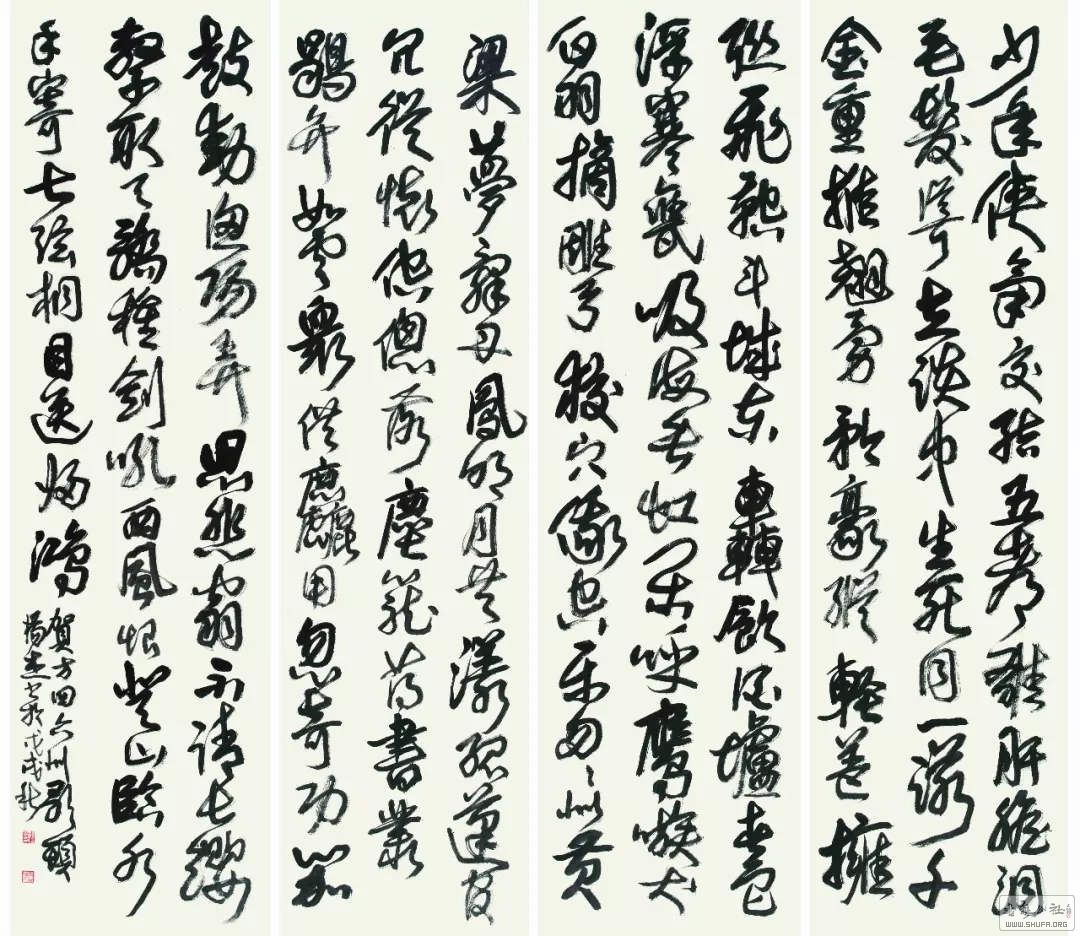 少年俠氣交結五都雄肝膽洞
毛髮聳立談中生死同一諾千
金重推翹勇矜豪縱輕蓋擁
聯飛鞚斗城東轟飲酒壚春色
浮寒甕吸海垂虹閒呼鷹嗾犬
白羽摘雕弓狡穴俄空樂匆匆似黄
粱夢辭丹鳳明月共漾孤蓬官
冗從懷倥偬落塵籠簿書叢
鶡弁如雲衆供麤用忽奇功笳
鼓動漁陽弄思悲翁不請長纓
繫取天驕種劍吼西風恨登山臨水
手寄七絃桐目送歸鴻
賀方回六州歌頭
書於戊戌秋
WWW.SHUFA.ORG